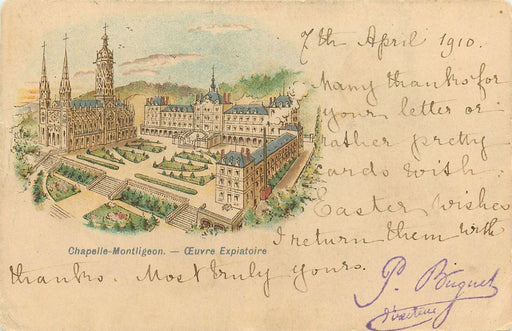 7th April 1910.
Many thanks for
your letter or
rather pretty
cards with
Easter wishes
I return them with
thanks. Most truly yours.
Chapelle-Montligeon. — Œuvre Expiatoire
P. Buguet
directeur